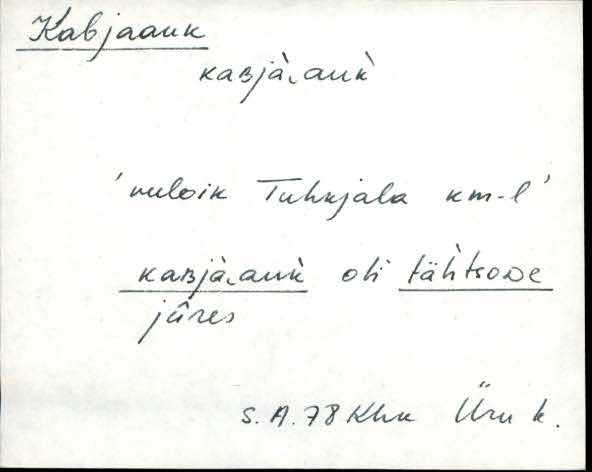 Kabjaauk
kaʙjà‿auk̀
'nuloik Tuhkjala km-l'
kaʙjà‿auk̀ oli tähtsoᴅe
jûres
S. A. 78 Khk Üru k.